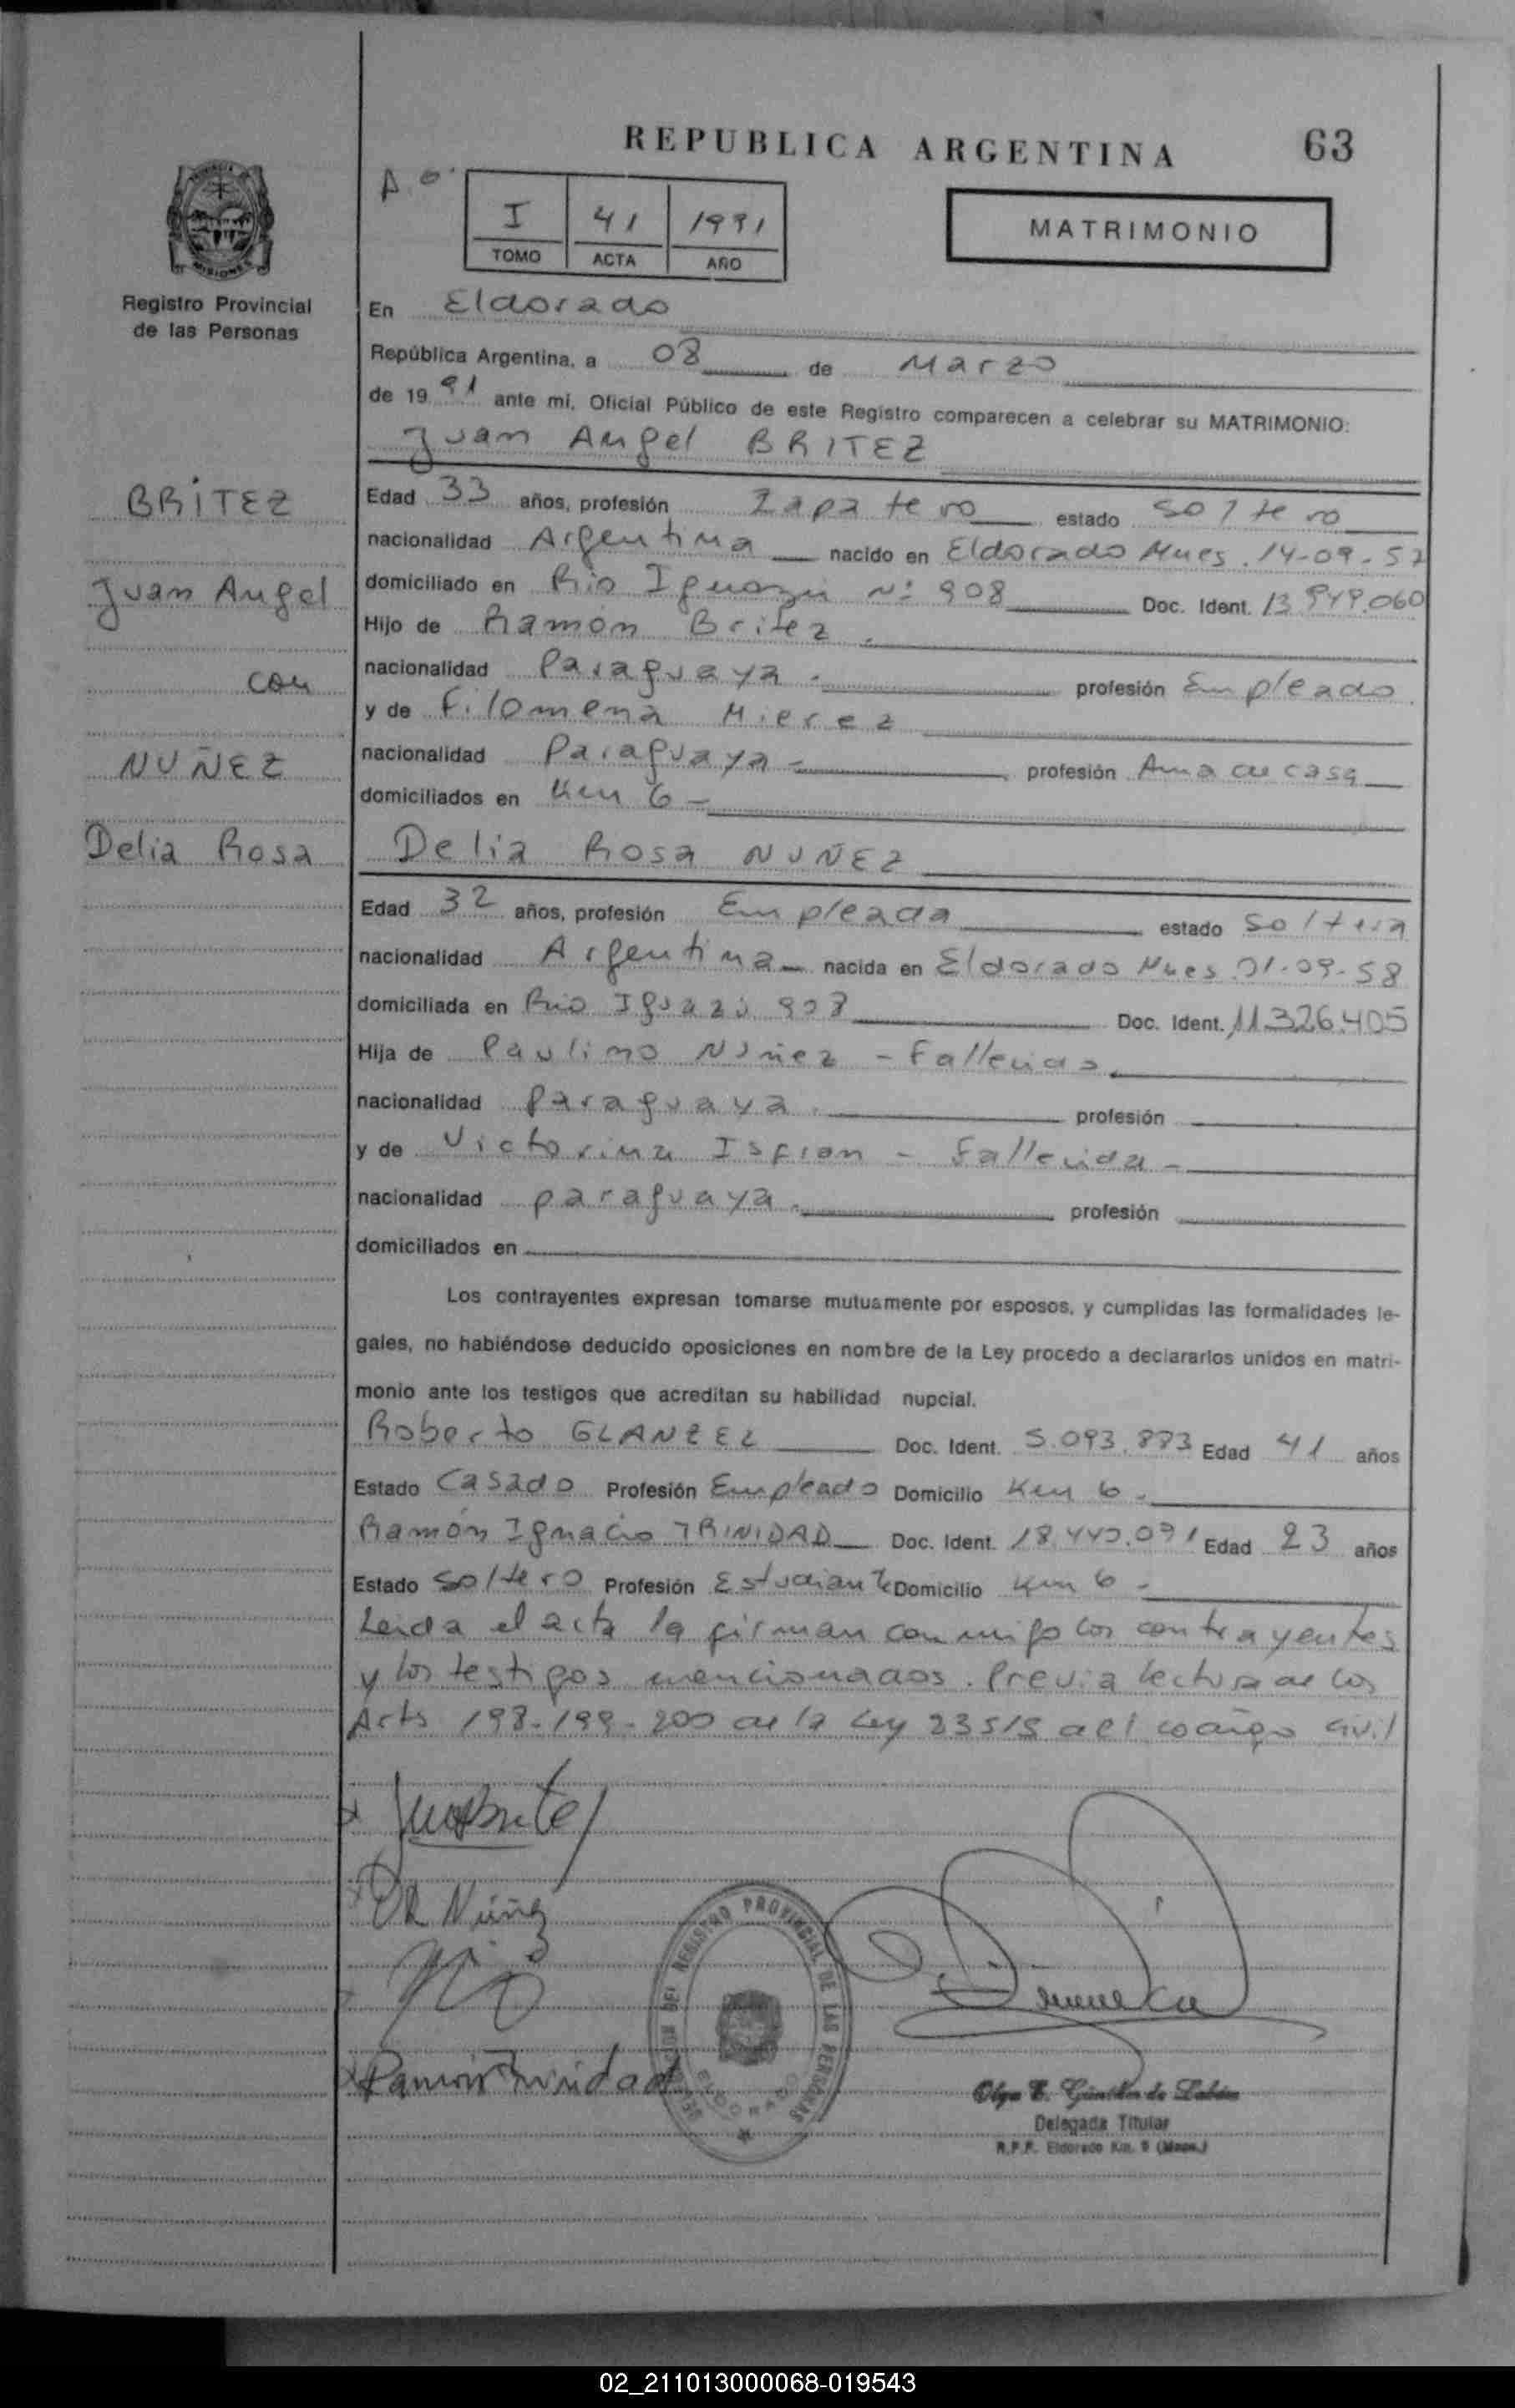 REPUBLICA ARGENTINA
63
I 41 1991
TOMO ACTA AÑO
MATRIMONIO
MISIONES
Registro Provincial
de las Personas
BRITEZ
Juan Angel
con
NUÑEZ
Delia Rosa
En Eldorado
República Argentina, a 08 de Marzo
de 19 91 ante mí, Oficial Público de este Registro comparecen a celebrar su MATRIMONIO:
Juan Angel BRITEZ
Edad 33 años, profesión Zapatero estado soltero
nacionalidad Argentina nacido en Eldorado Mnes. 14-09-57
domiciliado en Rio Iguazu Nº 908 Doc. Ident. 13.949.060
Hijo de Ramón Britez
nacionalidad Paraguaya profesión Empleado
y de Filomena Mierez
nacionalidad Paraguaya profesión Ama de casa
domiciliados en Km 6
Delia Rosa NUÑEZ
Edad 32 años, profesión Empleada estado soltera
nacionalidad Argentina nacida en Eldorado Mnes 01-09-58
domiciliada en Rio Iguazú 908 Doc. Ident. 11.326.405
Hija de Paulino Nuñez - Fallecido
nacionalidad Paraguaya profesión
y de Victorina - Fallecida -
nacionalidad paraguaya profesión
domiciliados en
Los contrayentes expresan tomarse mutuamente por esposos, y cumplidas las formalidades le-
gales, no habiéndose deducido oposiciones en nombre de la Ley procedo a declararlos unidos en matri-
monio ante los testigos que acreditan su habilidad nupcial.
Roberto GLANZEL Doc. Ident. Edad 41 años
Estado Casado Profesión Empleado Domicilio Km 6
Ramón Ignacio TRINIDAD Doc. Ident. Edad 23 años
Estado soltero Profesión Estudiante Domicilio Km 6
Leida el acta la firman conmigo los contrayentes
y los testigos mencionados. Previa lectura de los
Arts 198-199-200 de la Ley 23515 del codigo civil
DR Núñez
Ramón Trinidad
REGISTRO PROVINCIAL DE LAS PERSONAS
ELDORADO
Delegada Titular
R.P.P. Eldorado Km. 9 (Mnes.)
02_211013000068-019543